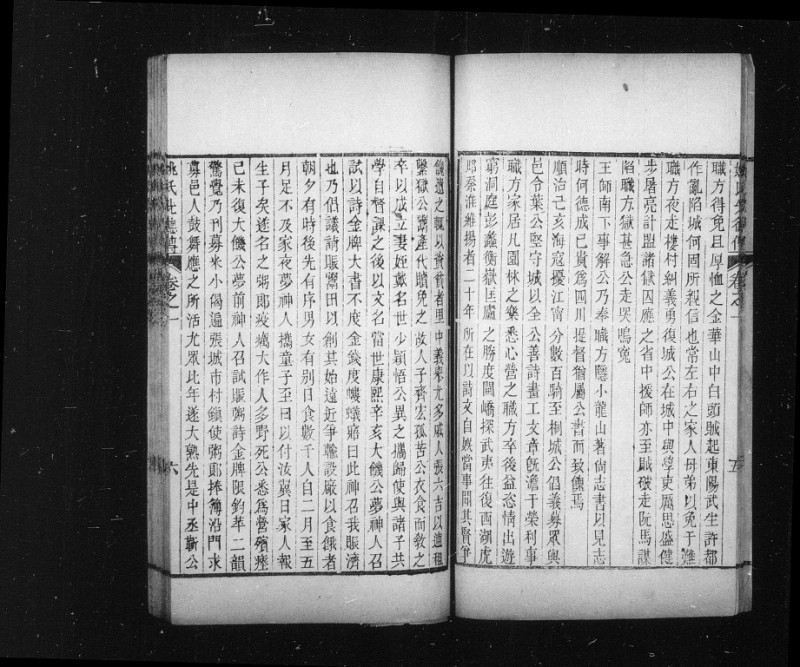 職方得免且厚恤之金華山中白頭賊起東陽武生許都
作亂陷城何固所親信也常左右之家人母弟以免于難
職方夜走樓村糾義勇復城公在城中與學東厲思盛健
步屠亮計盟諸獄囚應之省中援師亦至賊破走阮馬謀
陷職方獄甚急公走哭鳴寃
王師南下事解公乃奉職方隱小龍山著尚志書以見志
時何德成已貴爲四川提督猶屬公書而致餽焉
順治己亥海寇擾江甯分數百騎至桐城公倡義募眾與
邑令葉公堅守城以全公善詩畫工文章旣澹于榮利事
職方家居凡園林之樂悉心營之職方卒後益恣情出遊
窮洞庭彭蠡衡嶽匡廬之勝度閩嶠探武夷往復西湖虎
邱秦淮維揚者二十年所在以詩文自娛當事聞其賢爭
卷之一
五
繫獄公鬻產代贖免之故人子齊宏孤苦公衣食而敎之
卒以成立妻姪戴名世少穎悟公異之攜歸使與諸子共
學自督課之後以文名當世康熙辛亥大饑公夢神人召
試以詩金牌大書不度金錢度幭蟻賠曰此神召我賑濟
也乃倡議請賑鬻田以創其始遠近爭輸設廠以食餓者
朝夕有時後先有序男女有別日食數千人自二月至五
月足不及家夜夢神人攜童子至曰以付汝翼日家人報
生子矣遂名之粥郎疫癘大作人多野死公悉爲營殯瘞
己未復大饑公夢前神人召試賑粥詩金牌限鈞華二韻
驚覺乃刊募米小偈遍張城市村鎮使粥郎捧簿沿門求
募邑人鼓舞應之所活尤眾比年遂大熟先是中丞靳公
卷之一
六